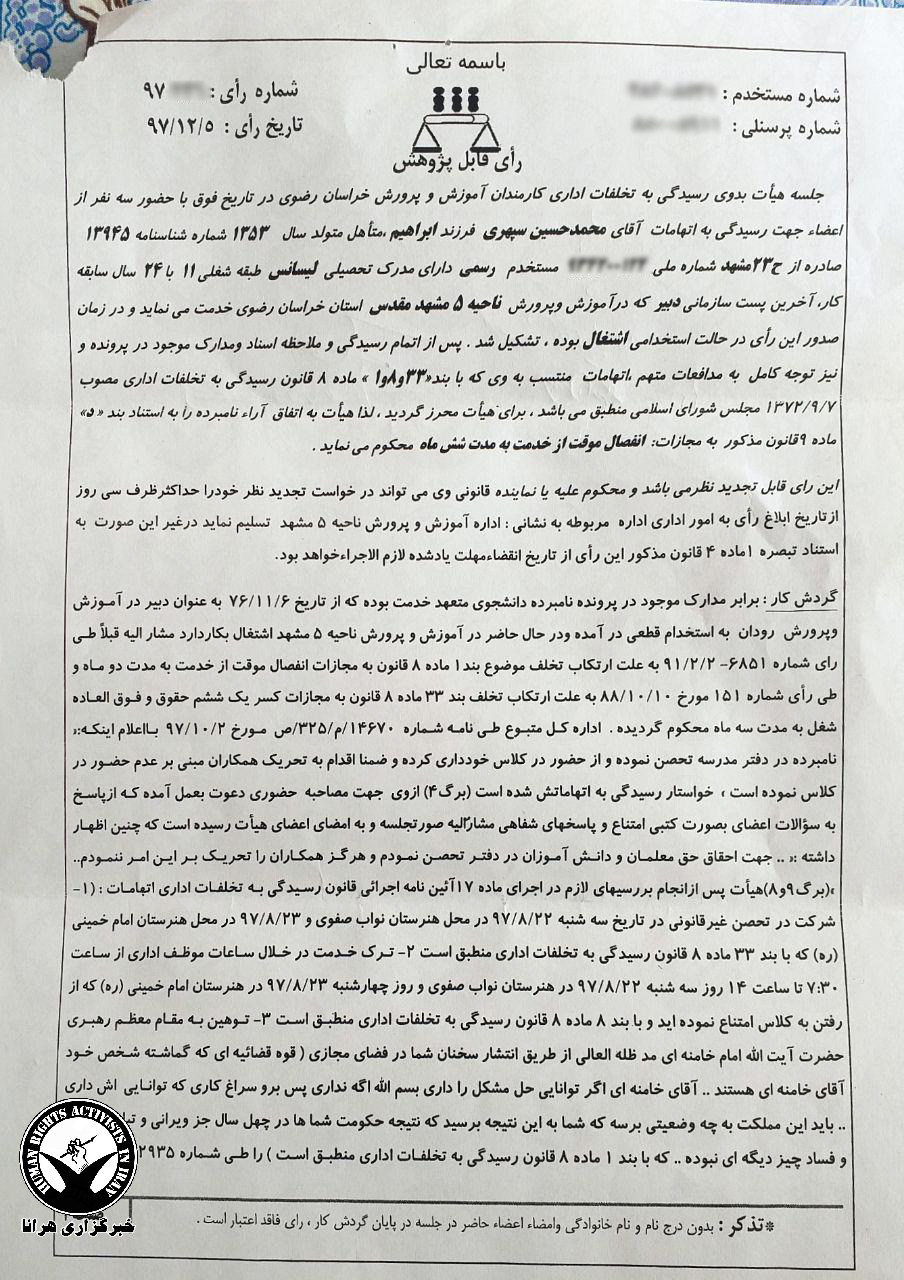 باسمه تعالی
شماره مستخدم :
شماره رأی : ۹۷
شماره پرسنلی :
تاریخ رأی : ۹۷/۱۲/۵
رأی قابل پژوهش
جلسه هیأت بدوی رسیدگی به تخلفات اداری کارمندان آموزش و پرورش خراسان رضوی در تاریخ فوق با حضور سه نفر از
اعضاء جهت رسیدگی به اتهامات آقای محمدحسین سپهری فرزند ابراهیم ،متأهل متولد سال ۱۳۵۳ شماره شناسنامه ۱۳۹۴۵
صادره از ح۲۳مشهد شماره ملی مستخدم رسمی دارای مدرک تحصیلی لیسانس طبقه شغلی ۱۱ با ۲۴ سال سابقه
کار، آخرین پست سازمانی دبیر که درآموزش وپرورش ناحیه ۵ مشهد مقدس استان خراسان رضوی خدمت می نماید و در زمان
صدور این رأی در حالت استخدامی اشتغال بوده ، تشکیل شد . پس از اتمام رسیدگی و ملاحظه اسناد ومدارک موجود در پرونده و
نیز توجه کامل به مدافعات متهم ،اتهامات منتسب به وی که با بند«۳۳و۸و۱ » ماده ۸ قانون رسیدگی به تخلفات اداری مصوب
۱۳۷۲/۹/۷ مجلس شورای اسلامی منطبق می باشد ، برای هیأت محرز گردید ، لذا هیأت به اتفاق آراء نامبرده را به استناد بند « د»
ماده ۹قانون مذکور به مجازات: انفصال موقت از خدمت به مدت شش ماه محکوم می نماید .
این رای قابل تجدید نظرمی باشد و محکوم علیه یا نماینده قانونی وی می تواند در خواست تجدید نظر خودرا حداکثرظرف سی روز
ازتاریخ ابلاغ رأی به امور اداری اداره مربوطه به نشانی : اداره آموزش و پرورش ناحیه ۵ مشهد تسلیم نماید درغیر این صورت به
استناد تبصره ۱ماده ۴ قانون مذکور این رأی از تاریخ انقضاءمهلت یادشده لازم الاجراءخواهد بود.
گردش کار : برابر مدارک موجود در پرونده نامبرده دانشجوی متعهد خدمت بوده که از تاریخ ۷۶/۱۱/۶ به عنوان دبیر در آموزش
وپرورش رودان به استخدام قطعی در آمده ودر حال حاضر در آموزش و پرورش ناحیه ۵ مشهد اشتغال بکاردارد مشار الیه قبلاً طی
رای شماره ۶۸۵۱- ۹۱/۲/۲ به علت ارتکاب تخلف موضوع بند۱ ماده ۸ قانون به مجازات انفصال موقت از خدمت به مدت دو ماه و
طی رأی شماره ۱۵۱ مورخ ۸۸/۱۰/۱۰ به علت ارتکاب تخلف بند ۳۳ ماده ۸ قانون به مجازات کسر یک ششم حقوق و فوق العاده
شغل به مدت سه ماه محکوم گردیده . اداره کل متبوع طی نامه شماره ۱۴۶۷۰/م/۳۲۵/ص مورخ ۹۷/۱۰/۲ بااعلام اینکه:«
نامبرده در دفتر مدرسه تحصن نموده و از حضور در کلاس خودداری کرده و ضمنا اقدام به تحریک همکاران مبنی بر عدم حضور در
کلاس نموده است ، خواستار رسیدگی به اتهاماتش شده است (برگ۴) ازوی جهت مصاحبه حضوری دعوت بعمل آمده که ازپاسخ
به سؤالات اعضای بصورت کتبی امتناع و پاسخهای شفاهی مشارٌالیه صورتجلسه و به امضای اعضای هیأت رسیده است که چنین اظهار
داشته :« .. جهت احقاق حق معلمان و دانش آموزان در دفتر تحصن نمودم و هرگز همکاران را تحریک بر این امر ننمودم..
»(برگ۹و۸)هیأت پس ازانجام بررسیهای لازم در اجرای ماده ۱۷آئین نامه اجرائی قانون رسیدگی به تخلفات اداری اتهامات : (۱-
شرکت در تحصن غیرقانونی در تاریخ سه شنبه ۹۷/۸/۲۲ در محل هنرستان نواب صفوی و ۹۷/۸/۲۳ در محل هنرستان امام خمینی
(ره) که با بند ۳۳ ماده ۸ قانون رسیدگی به تخلفات اداری منطبق است ۲- ترک خدمت در خلال ساعات موظف اداری از ساعت
۷:۳۰ تا ساعت ۱۴ روز سه شنبه ۹۷/۸/۲۲ در هنرستان نواب صفوی و روز چهارشنبه ۹۷/۸/۲۳ در هنرستان امام خمینی (ره) که از
رفتن به کلاس امتناع نموده اید و با بند ۸ ماده ۸ قانون رسیدگی به تخلفات اداری منطبق است ۳- توهین به مقام معظم رهبری
حضرت آیت الله امام خامنه ای مد ظله العالی از طریق انتشار سخنان شما در فضای مجازی ( قوه قضائیه ای که گماشته شخص خود
آقای خامنه ای هستند .. آقای خامنه ای اگر توانایی حل مشکل را داری بسم الله اگه نداری پس برو سراغ کاری که توانایی اش داری
.. باید این مملکت به چه وضعیتی برسه که شما به این نتیجه برسید که نتیجه حکومت شما ها در چهل سال جز ویرانی و
و فساد چیز دیگه ای نبوده .. که با بند ۱ ماده ۸ قانون رسیدگی به تخلفات اداری منطبق است ) را طی شماره ۲۹۳۵
*تذکر : بدون درج نام و نام خانوادگی وامضاء اعضاء حاضر در جلسه در پایان گردش کار ، رای فاقد اعتبار است .
HUMAN RIGHTS ACTIVISTS IN IRAN
خبرگزاری هرانا